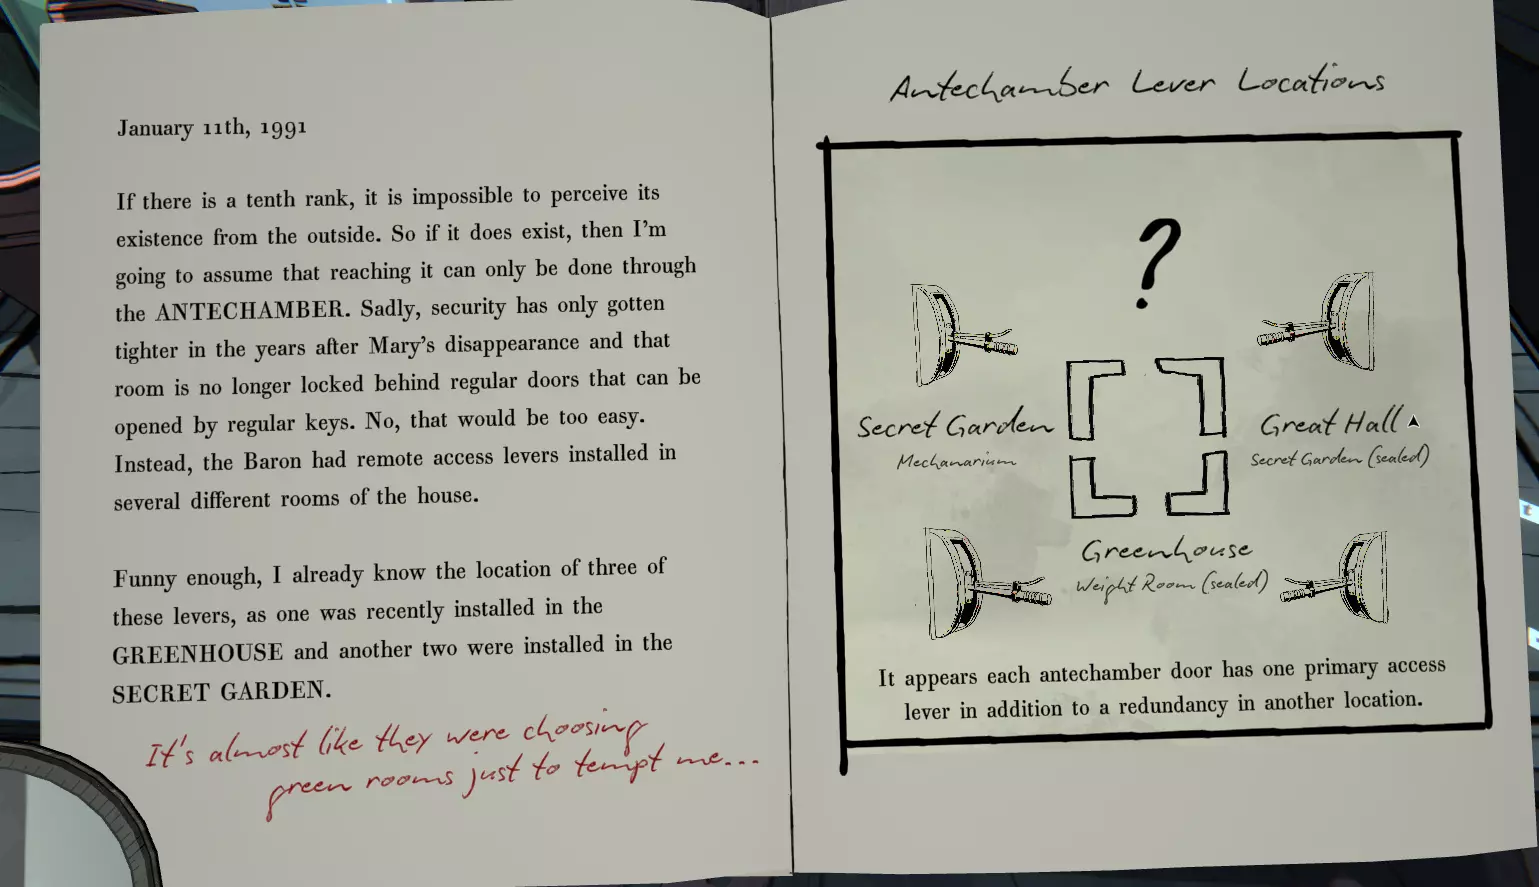 January 11th, 1991
If there is a tenth rank, it is impossible to perceive its
existence from the outside. So if it does exist, then I'm
going to assume that reaching it can only be done through
the ANTECHAMBER. Sadly, security has only gotten
tighter in the years after Mary's disappearance and that
room is no longer locked behind regular doors that can be
opened by regular keys. No, that would be too easy.
Instead, the Baron had remote access levers installed in
several different rooms of the house.
Funny enough, I already know the location of three of
these levers, as one was recently installed in the
GREENHOUSE and another two were installed in the
SECRET GARDEN.
It's almost like they were choosing
green rooms just to tempt me...
Antechamber Lever Locations
?
Secret Garden
Mechanarium
Great Hall
Secret Garden (sealed)
Greenhouse
Weight Room (sealed)
It appears each antechamber door has one primary access
lever in addition to a redundancy in another location.